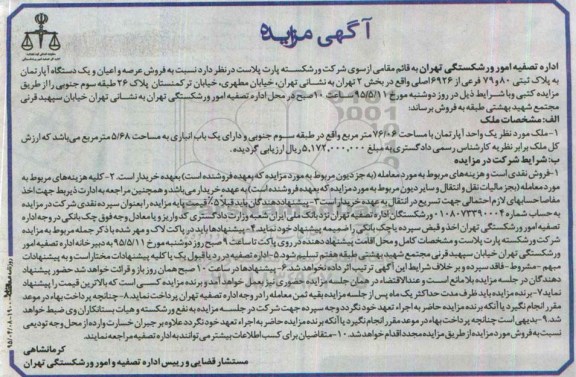 آگهی مزایده
اداره تصفیه امور ورشکستگی تهران به قائم مقامی از سوی شرکت ورشکسته پارت پلاست در نظر دارد نسبت به فروش عرصه و اعیان و یک دستگاه آپارتمان
به پلاک ثبتی ۸۰ و ۷۹ فرعی از ۶۹۲۶ اصلی واقع در بخش ۳ تهران به نشانی تهران، خیابان مطهری، خیابان ترکمنستان پلاک ۲۶ طبقه سوم جنوبی را از طریق
مزایده کتبی و با شرایط ذیل در روز دوشنبه مورخ ۹۵/۵/۱۱ ساعت ۱۰ صبح در محل اداره تصفیه امور ورشکستگی تهران به نشانی تهران خیابان سپهبد قرنی
مجتمع شهید بهشتی طبقه به فروش برساند:
الف: مشخصات ملک
۱- ملک مورد نظر یک واحد آپارتمان با مساحت ۷۶/۰۶ متر مربع واقع در طبقه سوم جنوبی و دارای یک باب انباری به مساحت ۵/۶۸ متر مربع می باشد که ارزش
کل ملک برابر نظریه کارشناس رسمی دادگستری به مبلغ ۵,۱۷۲,۰۰۰,۰۰۰ ریال ارزیابی گردیده.
ب: شرایط شرکت در مزایده
۱- فروش نقدی است و هزینه های مربوط به مورد معامله (به جز دیون مربوط به مورد مزایده که بعهده فروشنده است) بعهده خریدار است. ۲- کلیه هزینه های مربوط به
مورد معامله (بجز مالیات نقل و انتقال و سایر دیون مربوط به مورد مزایده که بعهده فروشنده است) به عهده خریدار می باشد و همچنین مراجعه به ادارات ذیربط جهت اخذ
مفاصا حسابهای لازم احتمالی جهت تسریع در انتقال به عهده خریدار است ۳- پیشنهاد دهندگان باید قبلا ۵٪ قیمت پایه مزایده را بعنوان سپرده نقدی شرکت در مزایده
به حساب شماره ۰۱۰۸۰۷۳۳۹۰۰۰۴ ورشکستگان اداره تصفیه تهران نزد بانک ملی ایران شعبه وزارت دادگستری کد واریز و یا معادل وجه فوق چک بانکی در وجه اداره
تصفیه امور ورشکستگی تهران اخذ و قبض سپرده یا چک بانکی را ضمیمه پیشنهاد خود نماید. ۴- پیشنهادها باید در پاکت لاک و مهر شده با ذکر جمله مربوط به مزایده
شرکت ورشکسته پارت پلاست و مشخصات کامل و محل اقامت پیشنهاد دهنده در روی پاکت تا ساعت ۹ صبح روز دوشنبه مورخ ۹۵/۵/۱۱ به دبیرخانه اداره تصفیه امور
ورشکستگی تهران خیابان سپهبد قرنی مجتمع شهید بهشتی طبقه هفتم تسلیم شود. ۵- اداره تصفیه در رد یا قبول یک یا کلیه پیشنهادات مختار است و به پیشنهادات
مبهم - مشروط - فاقد سپرده و بر خلاف شرایط این آگهی ترتیب اثر داده نخواهد شد. ۶- پیشنهادها در ساعت ۱۰ صبح همان روز باز و قرائت خواهد شد حضور پیشنهاد
دهندگان در جلسه مزایده بلامانع است و عندالاقتضاء در همان جلسه مزایده حضوری نیز بعمل خواهد آمد و برنده مزایده کسی است که بالاترین قیمت را پیشنهاد
نماید ۷- برنده مزایده باید ظرف مدت حداکثر یک ماه پس از جلسه مزایده بقیه ثمن معامله را در وجه اداره تصفیه تهران پرداخت نماید. ۸- چنانچه پرداخت بهاء در موعد
مقرر انجام نگیرد یا آنکه برنده مزایده حاضر به اجراء تعهد خود نگردد وجه سپرده جهت شرکت در جلسه مزایده به نفع ورشکسته و هیات بستانکاران وی ضبط خواهد
شد. ۹- بدیهی است چنانچه پرداخت بهاء در موعد مقرر انجام نگیرد یا آنکه برنده مزایده حاضر به اجراء تعهد خود نگردد علاوه بر جبران خسارت وارده از محل وجه تودیعی
نسبت به فروش مورد مزایده از طریق مزایده مجدد اقدام خواهد شد. ۱۰- متقاضیان برای کسب اطلاعات بیشتر می توانند به اداره تصفیه مراجعه نمایند.
کرمانشاهی
مستشار قضایی و رییس اداره تصفیه و امور ورشکستگی تهران